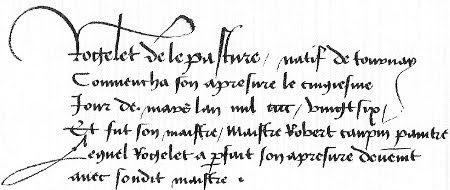 Rogelet de le pasture, natif de tournay
Commencha son apresure le cinqiesme
Jour de mars lan mil cccc vingt six,
Et fut son maistre, Maistre Robert campin paintre
Lequel Rogelet a parfait son apresure deuement
avec sondit maistre.